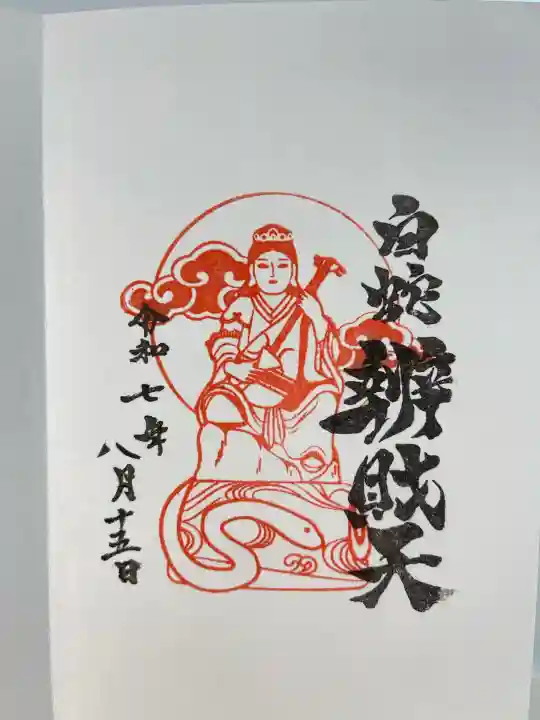 白蛇辨財天
令和七年
八月十五日